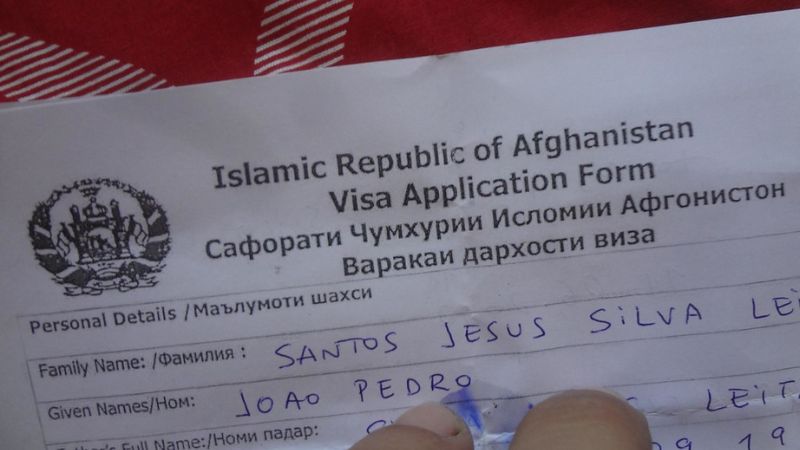 Islamic Republic of Afghanistan
Visa Application Form
Сафорати Чумхурии Исломии Афгонистон
Варакаи дархости виза
Personal Details /Маълумоти шахси
Family Name: /Фамилия : SANTOS JESUS SILVA
Given Names/Ном: JOAO PEDRO
Full Name:/Номи падар: